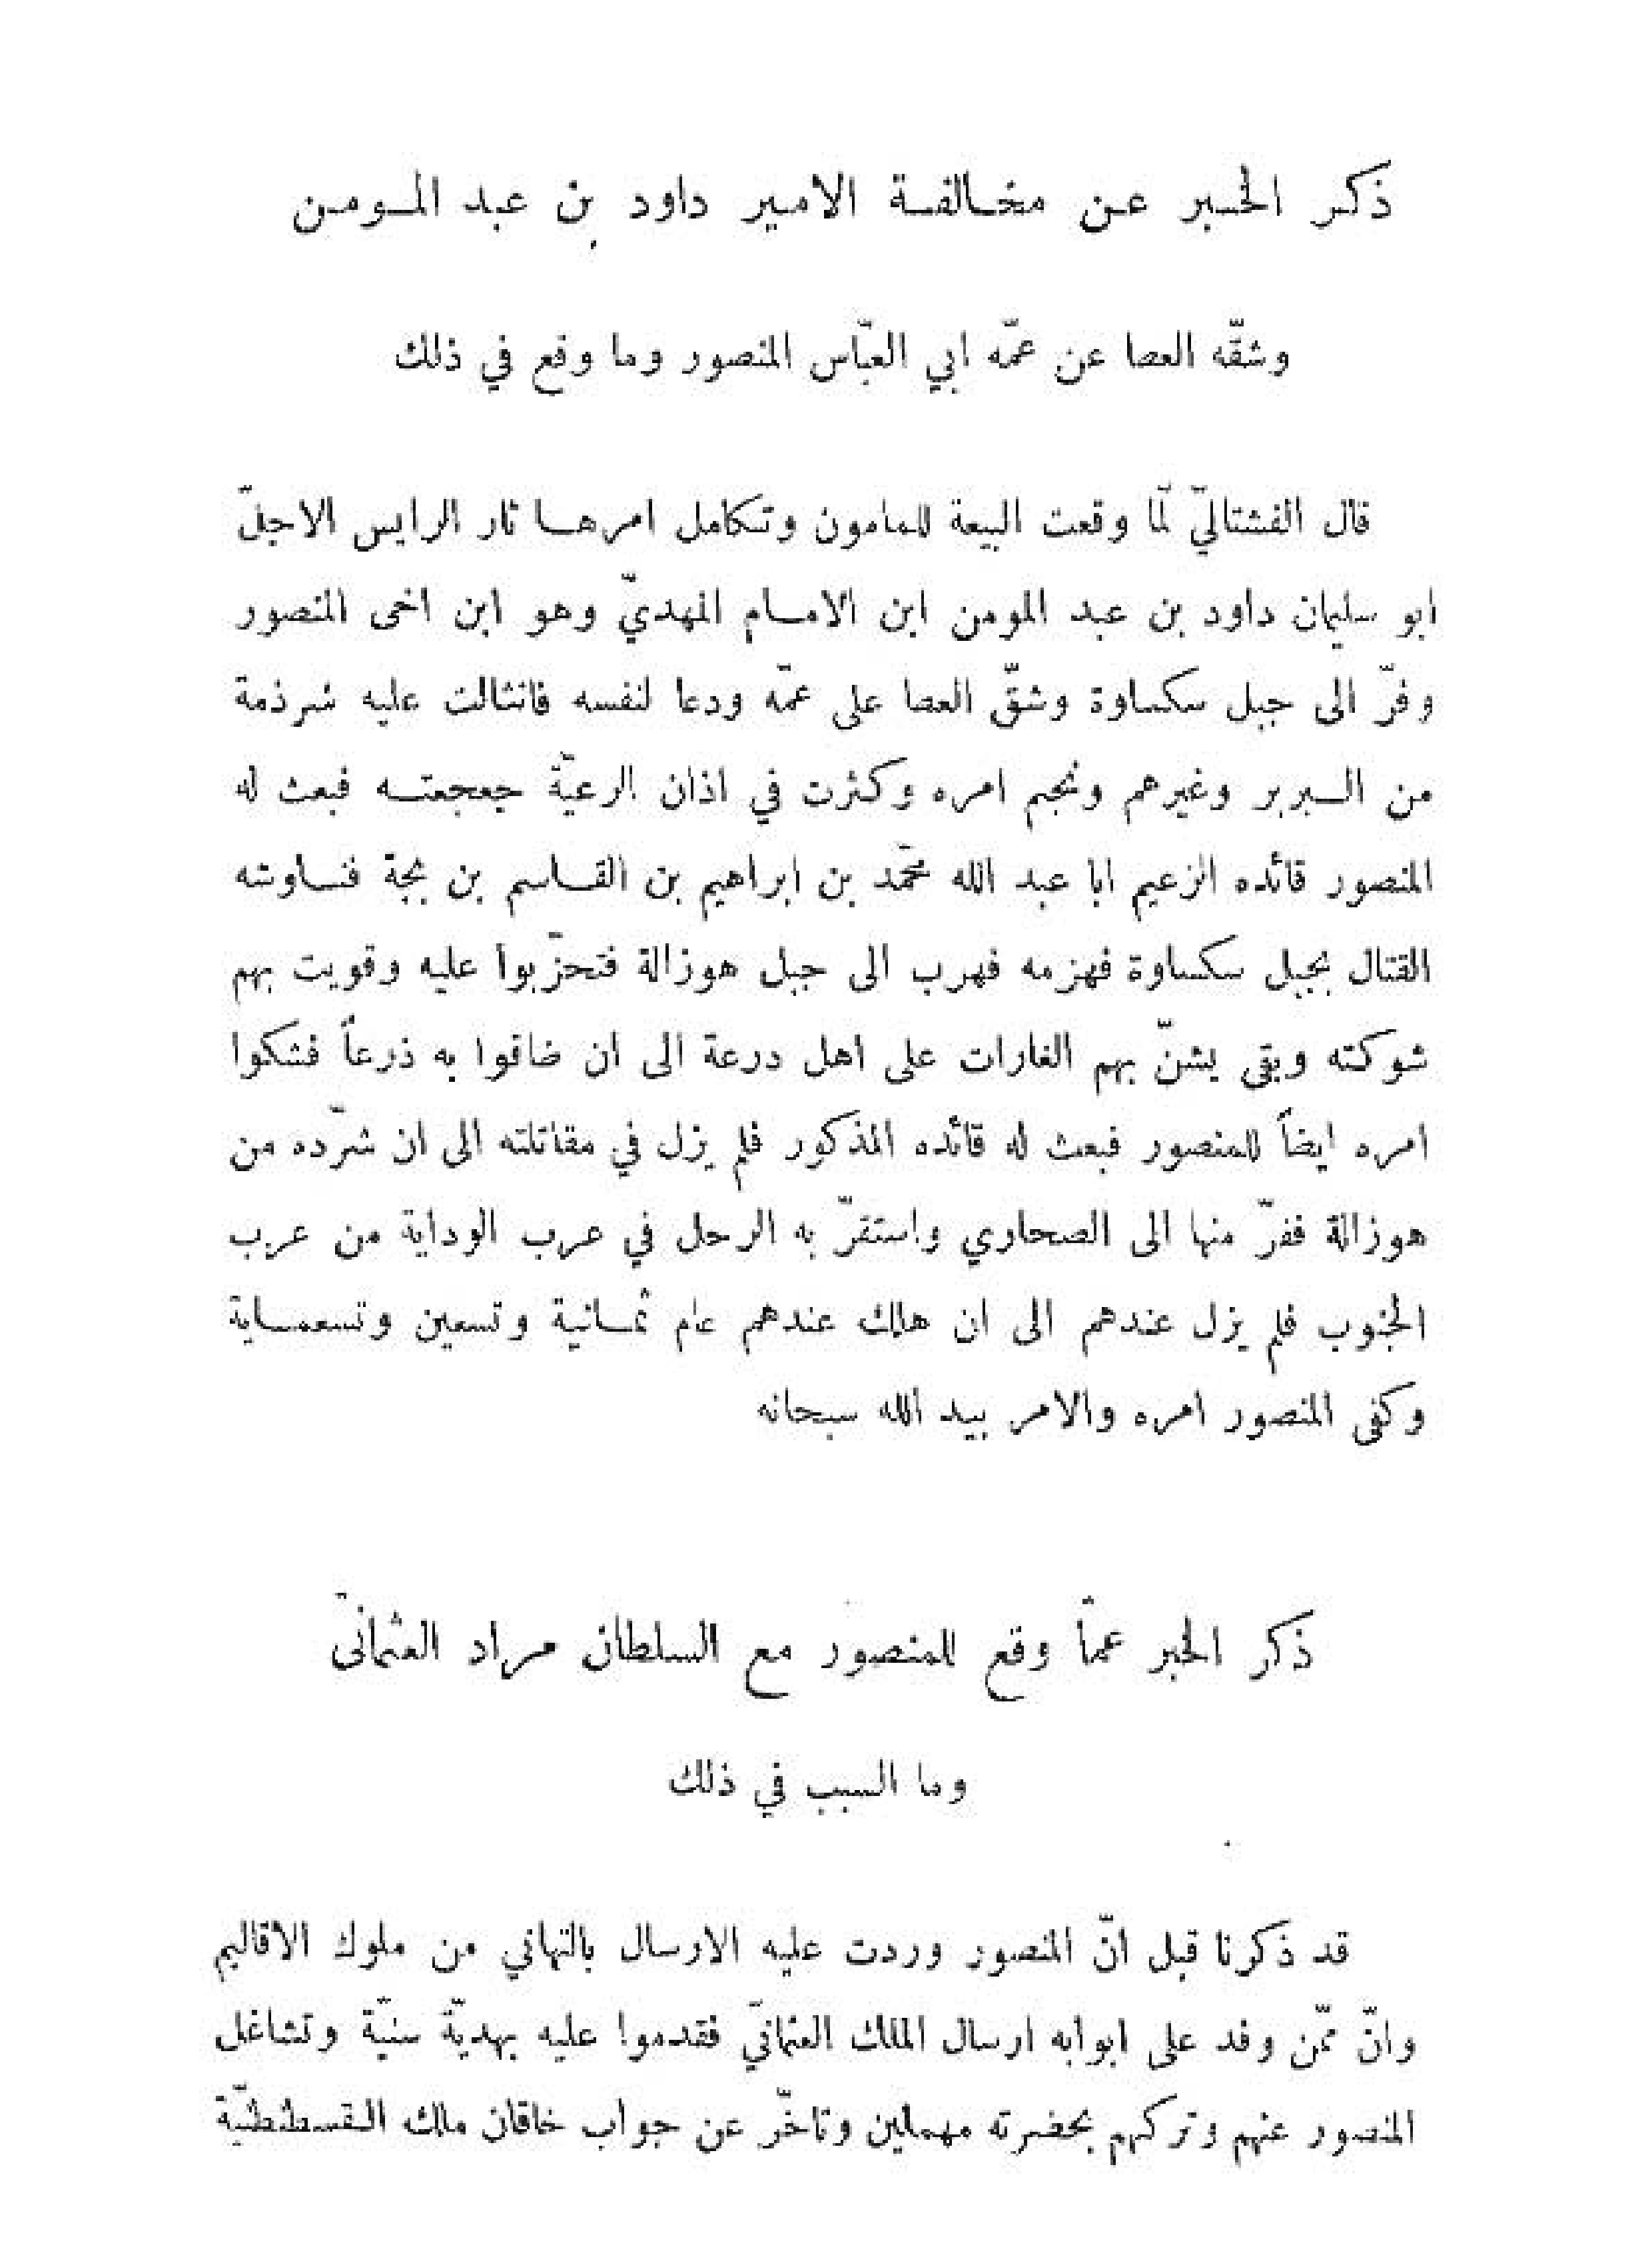 ذكر الخبر عن مخالفة الامير داود بن عبد المومن
وشقّه العصا عن عمّه ابي العبّاس المنصور وما وقع في ذلك
قال الفشتاليّ لمّا وقعت البيعة للمامون وتكامل امرها ثار الرايس الاجلّ
ابو سليمان داود بن عبد المومن ابن الامام المهديّ وهو ابن اخى المنصور
وفرّ الى جبل سكساوة وشقّ العصا على عمّه ودعا لنفسه فانثالت عليه شرذمة
من البربر وغيرهم ونجم امره وكثرت في اذان الرعيّة جعجعته فبعث له
المنصور قائده الزعيم ابا عبد الله محمّد بن ابراهيم بن القاسم بن بجة فناوشه
القتال بجبل سكساوة فهزمه فهرب الى جبل هوزالة فتحزّبوا عليه وقويت بهم
شوكته وبقى يشنّ بهم الغارات على اهل درعة الى ان ضاقوا به ذرعاً فشكوا
امره ايضاً للمنصور فبعث له قائده المذكور فلم يزل في مقاتلته الى ان شرّده من
هوزالة ففرّ منها الى الصحاري واستقرّ به الرحل في عرب الوداية من عرب
الجنوب فلم يزل عندهم الى ان هلك عندهم عام ثمانية وتسعين وتسعماية
وكفى المنصور امره والامر بيد الله سبحانه
ذكر الخبر عمّا وقع للمنصور مع السلطان مراد العثمانىّ
وما السبب في ذلك
قد ذكرنا قبل انّ المنصور وردت عليه الارسال بالتهاني من ملوك الاقاليم
وانّ ممّن وفد على ابوابه ارسال الملك العثمانيّ فقدموا عليه بهديّة سنيّة وتشاغل
المنصور عنهم وتركهم بحضرته مهملين وتاخّر عن جواب خاقان ملك القسطنطنيّة